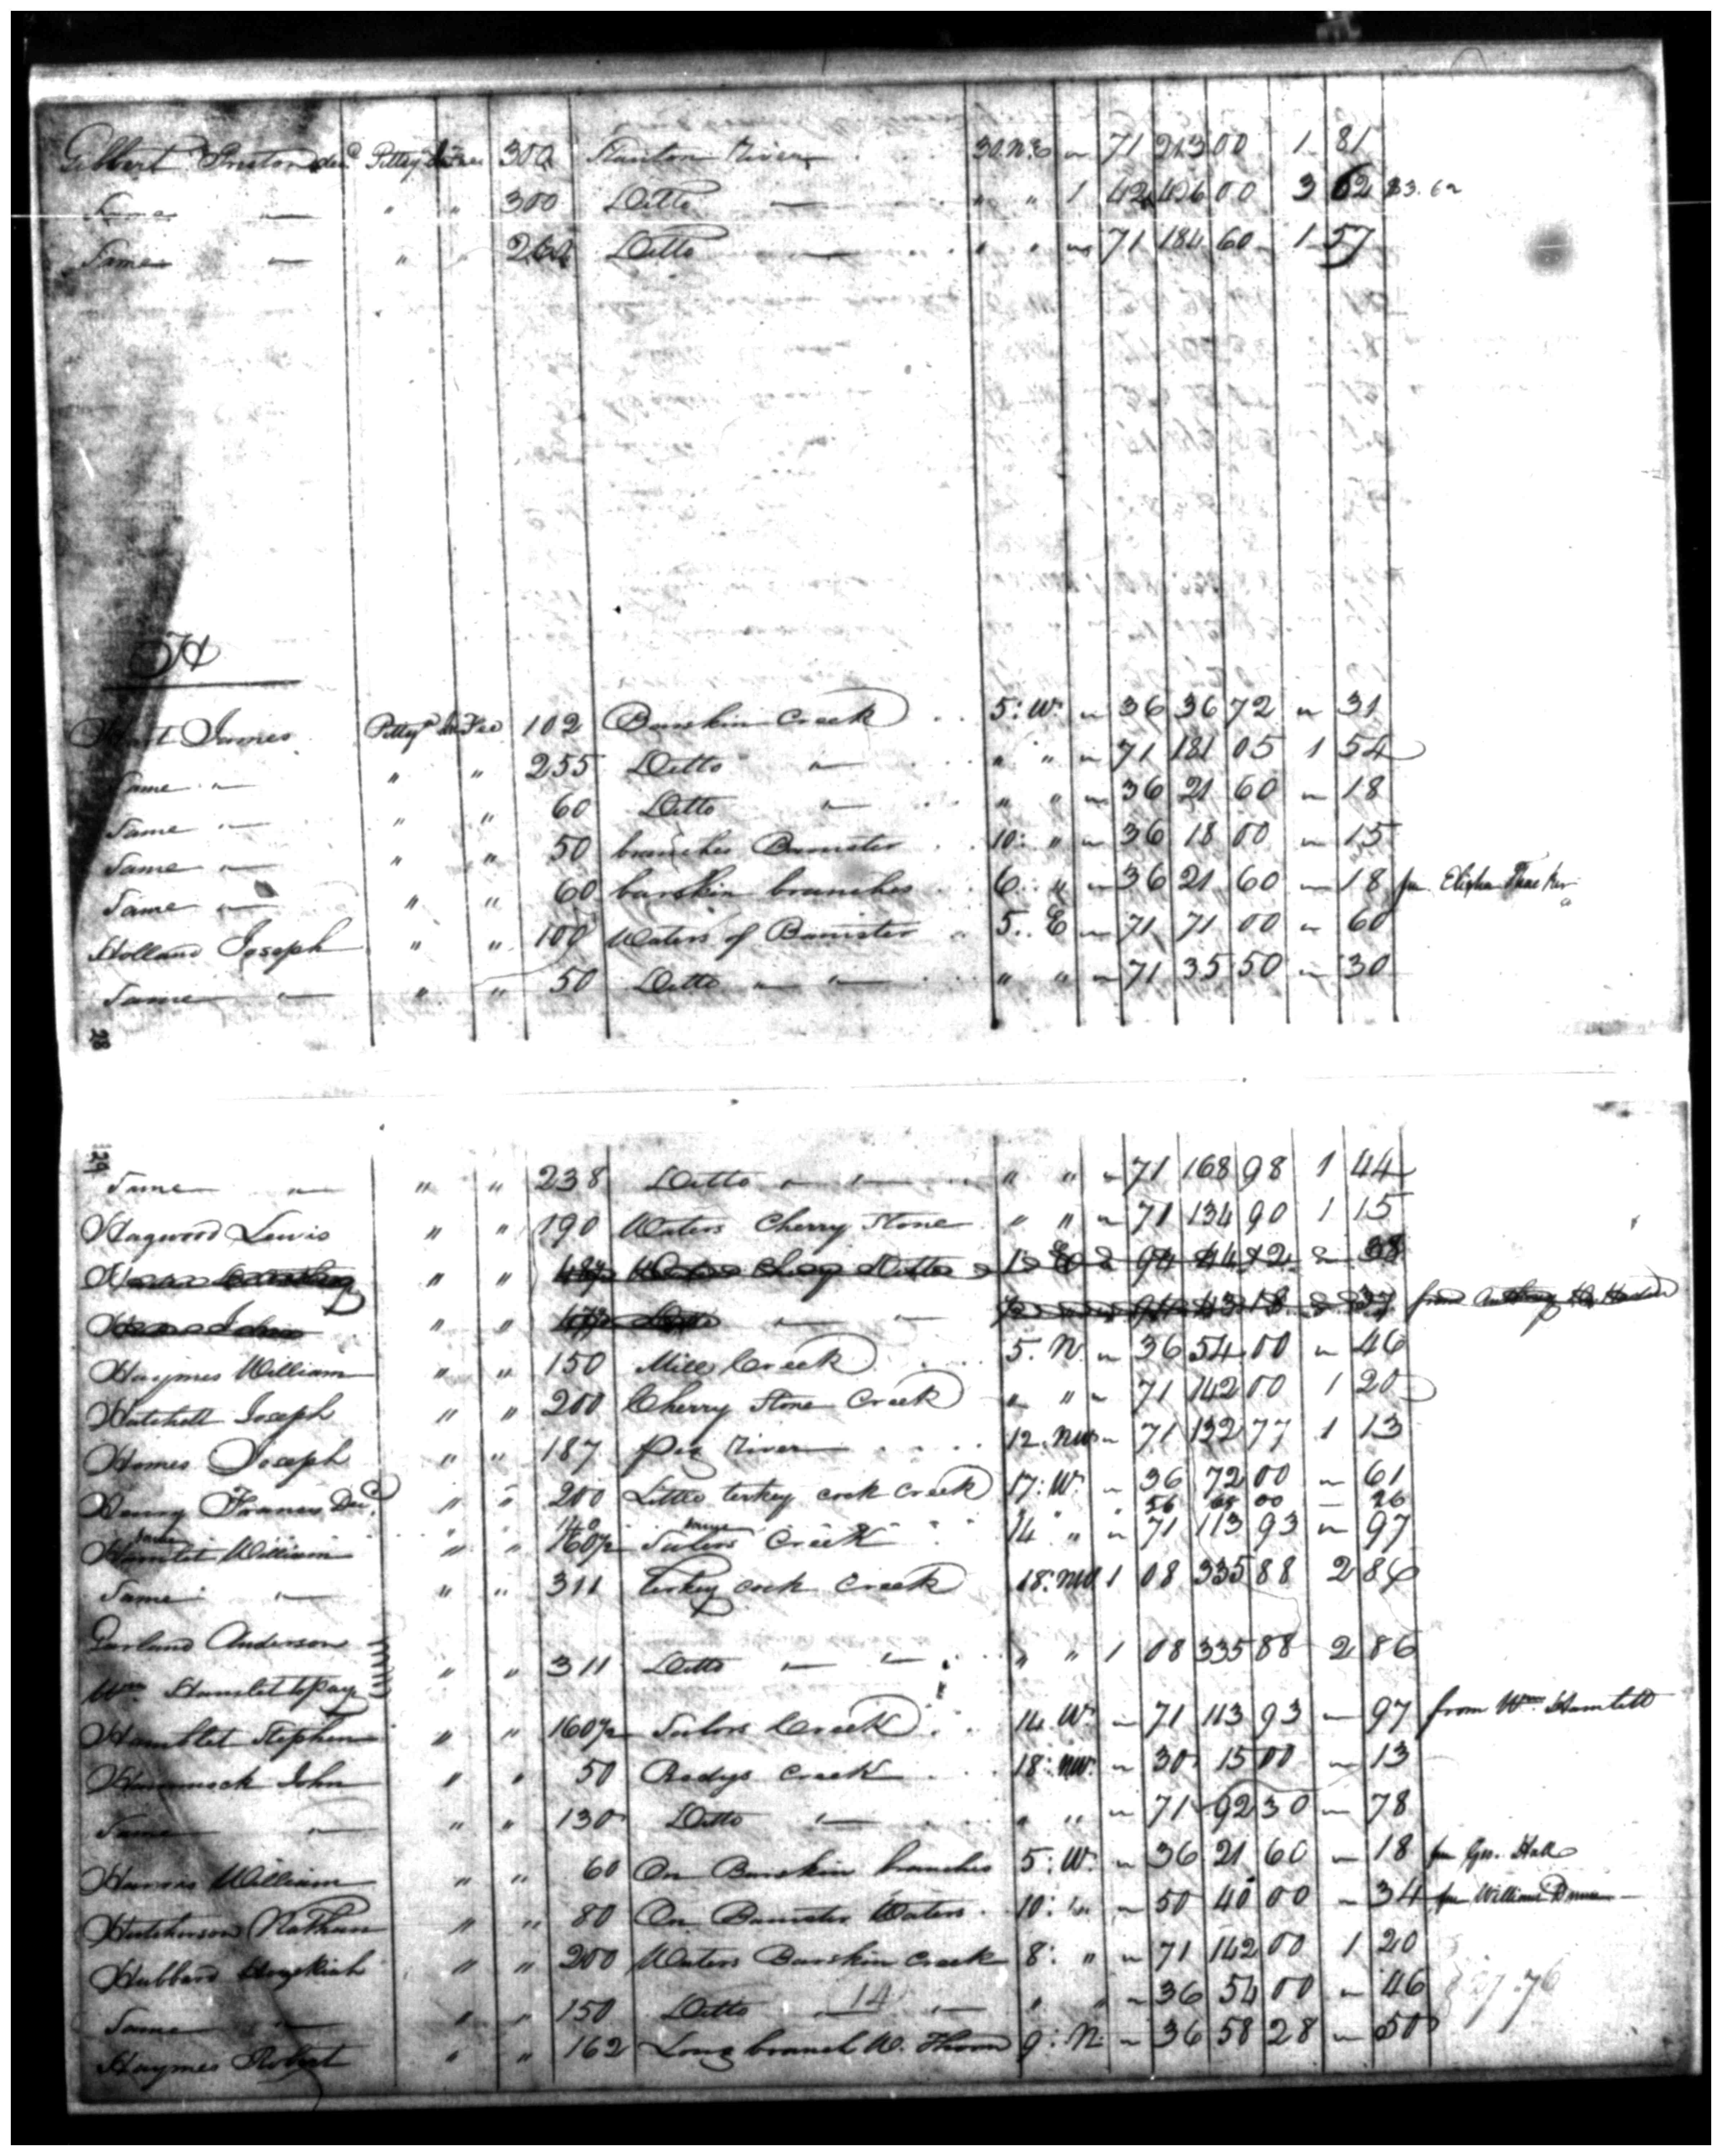 Gilbert Preston decd Pittsya Fee 300 Stanton River 30. N.E " 71 213 00 1 81
Same " " " 300 Ditto " " 1 42 426 00 3 62 $3.62
Same " " " 260 Ditto " " " 71 184 60 1 57
H
Hart James Pittsya Fee 102 Barskin Creek 5: W. " 36 36 72 " 31
Same " " " 255 Ditto " " " " 71 181 05 1 54
Same " " " 60 Ditto " " " " 36 21 60 " 18
Same " " " 50 branches Banister 10: " " 36 18 00 " 15
Same " " " 60 barskin branches 6: " " 36 21 60 " 18 fm Elisha Thacker
Holland Joseph " " 100 Waters of Banister 5.. E " 71 71 00 " 60
Same " " " 50 Ditto " " " " " 71 35 50 " 30
28
29
Same " " " 238 Ditto " " " " " 71 168 98 1 44
Hagwood Lewis " " 190 Waters Cherry Stone " " " 71 134 90 1 15
" " 94 44 12 " 38
" "
Haymes William " " 150 Mill Creek 5. N. " 36 54 00 " 46
Hatchett Joseph " " 200 Cherry Stone Creek " " " 71 142 00 1 20
Homes Joseph " " 187 Pig River 12. NW " 71 132 77 1 13
Henry Francis Decd " " 200 Little terkey cock Creek 17: W. " 36 72 00 " 61
140 same 56 00 26
Hamlet William " " 160½ Sailors Creek 14 " " 71 113 93 " 97
Same " " " 311 Terkey cock Creek 18: NW 1 08 335 88 2 86
Garland Anderson
Wm Hamlet to pay " " 311 Ditto " " " " 1 08 335 88 2 86
Hamblet Stephen " " 160½ Sailors Creek 14. W. " 71 113 93 " 97 from Wm Hamlett
Hammock John " " 50 Redys Creek 18: NW. " 30 15 00 " 13
Same " " " 130 Ditto " " " " 71 92 30 " 78
Harris William " " 60 On Barskin branches 5: W. " 36 21 60 " 18 fm Geo. Hall
Hutcherson Nathan " " 80 On Banister Waters 10: " " 50 40 00 " 34 fm William
Hubbard Hezekiah " " 200 Waters Barskin Creek 8: " " 71 142 00 1 20
Same " " " 150 Ditto 14 " " " " 36 54 00 " 46 $27.76
Haymes Robert " " 162 Long branch W. Thorn 9: N. " 36 58 28 " 50